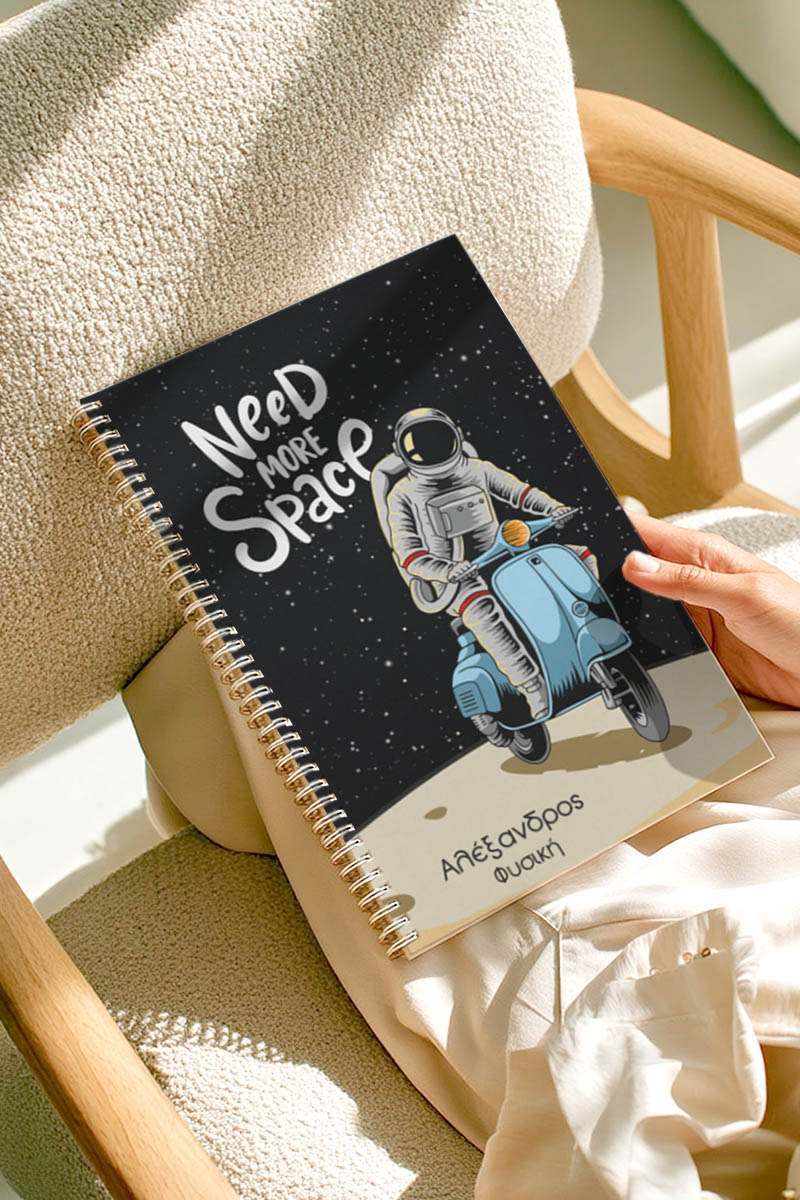 NeeD
MORE
Space
Αλέξανδρος
Φυσική